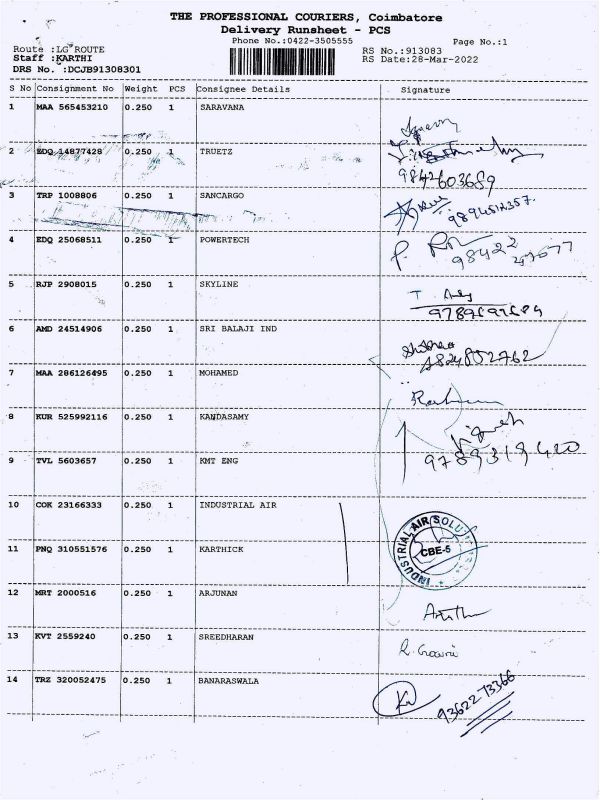 THE PROFESSIONAL COURIERS, Coimbatore
Delivery Runsheet - PCS
Phone No.:0422-3505555
Page No.:1
Route :LG ROUTE
RS No.:913083
Staff :KARTHI
RS Date:28-Mar-2022
DRS No. :DCJB91308301
S No Consignment No Weight PCS Consignee Details Signature
1 MAA 565453210 0.250 1 SARAVANA
2 EDQ 14877428 0.250 1 TRUETZ
9842603689
3 TRP 1008806 0.250 1 SANCARGO
9894512357.
4 EDQ 25068511 0.250 1 POWERTECH
98422
5 RJP 2908015 0.250 1 SKYLINE
6 AMD 24514906 0.250 1 SRI BALAJI IND
7 MAA 286126495 0.250 1 MOHAMED
8 KUR 525992116 0.250 1 KANDASAMY
9 TVL 5603657 0.250 1 KMT ENG
9789319420
10 COK 23166333 0.250 1 INDUSTRIAL AIR
INDUSTRIAL AIR SOLUTIONS
CBE-5
11 PNQ 310551576 0.250 1 KARTHICK
12 MRT 2000516 0.250 1 ARJUNAN
13 KVT 2559240 0.250 1 SREEDHARAN
R. Gowri
14 TRZ 320052475 0.250 1 BANARASWALA
93622-73366